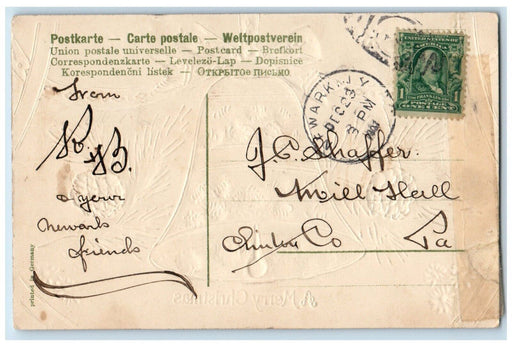 Postkarte — Carte postale — Weltpostverein
Union postale universelle — Postcard — Brefkort
Correspondenzkarte — Levelező-Lap — Dopisnice
Korespondenční lístek — ОТКРЫТОЕ ПИСЬМО
From
& your
Newark
friends
NEWARK, N.J.
DEC 23
3 PM
UNITED STATES OF
AMERICA
1 1
POSTAGE ONE CENT
J. C. Shaffer.
Mill Hall
Clinton Co Pa
printed in Germany
A Merry Christmas